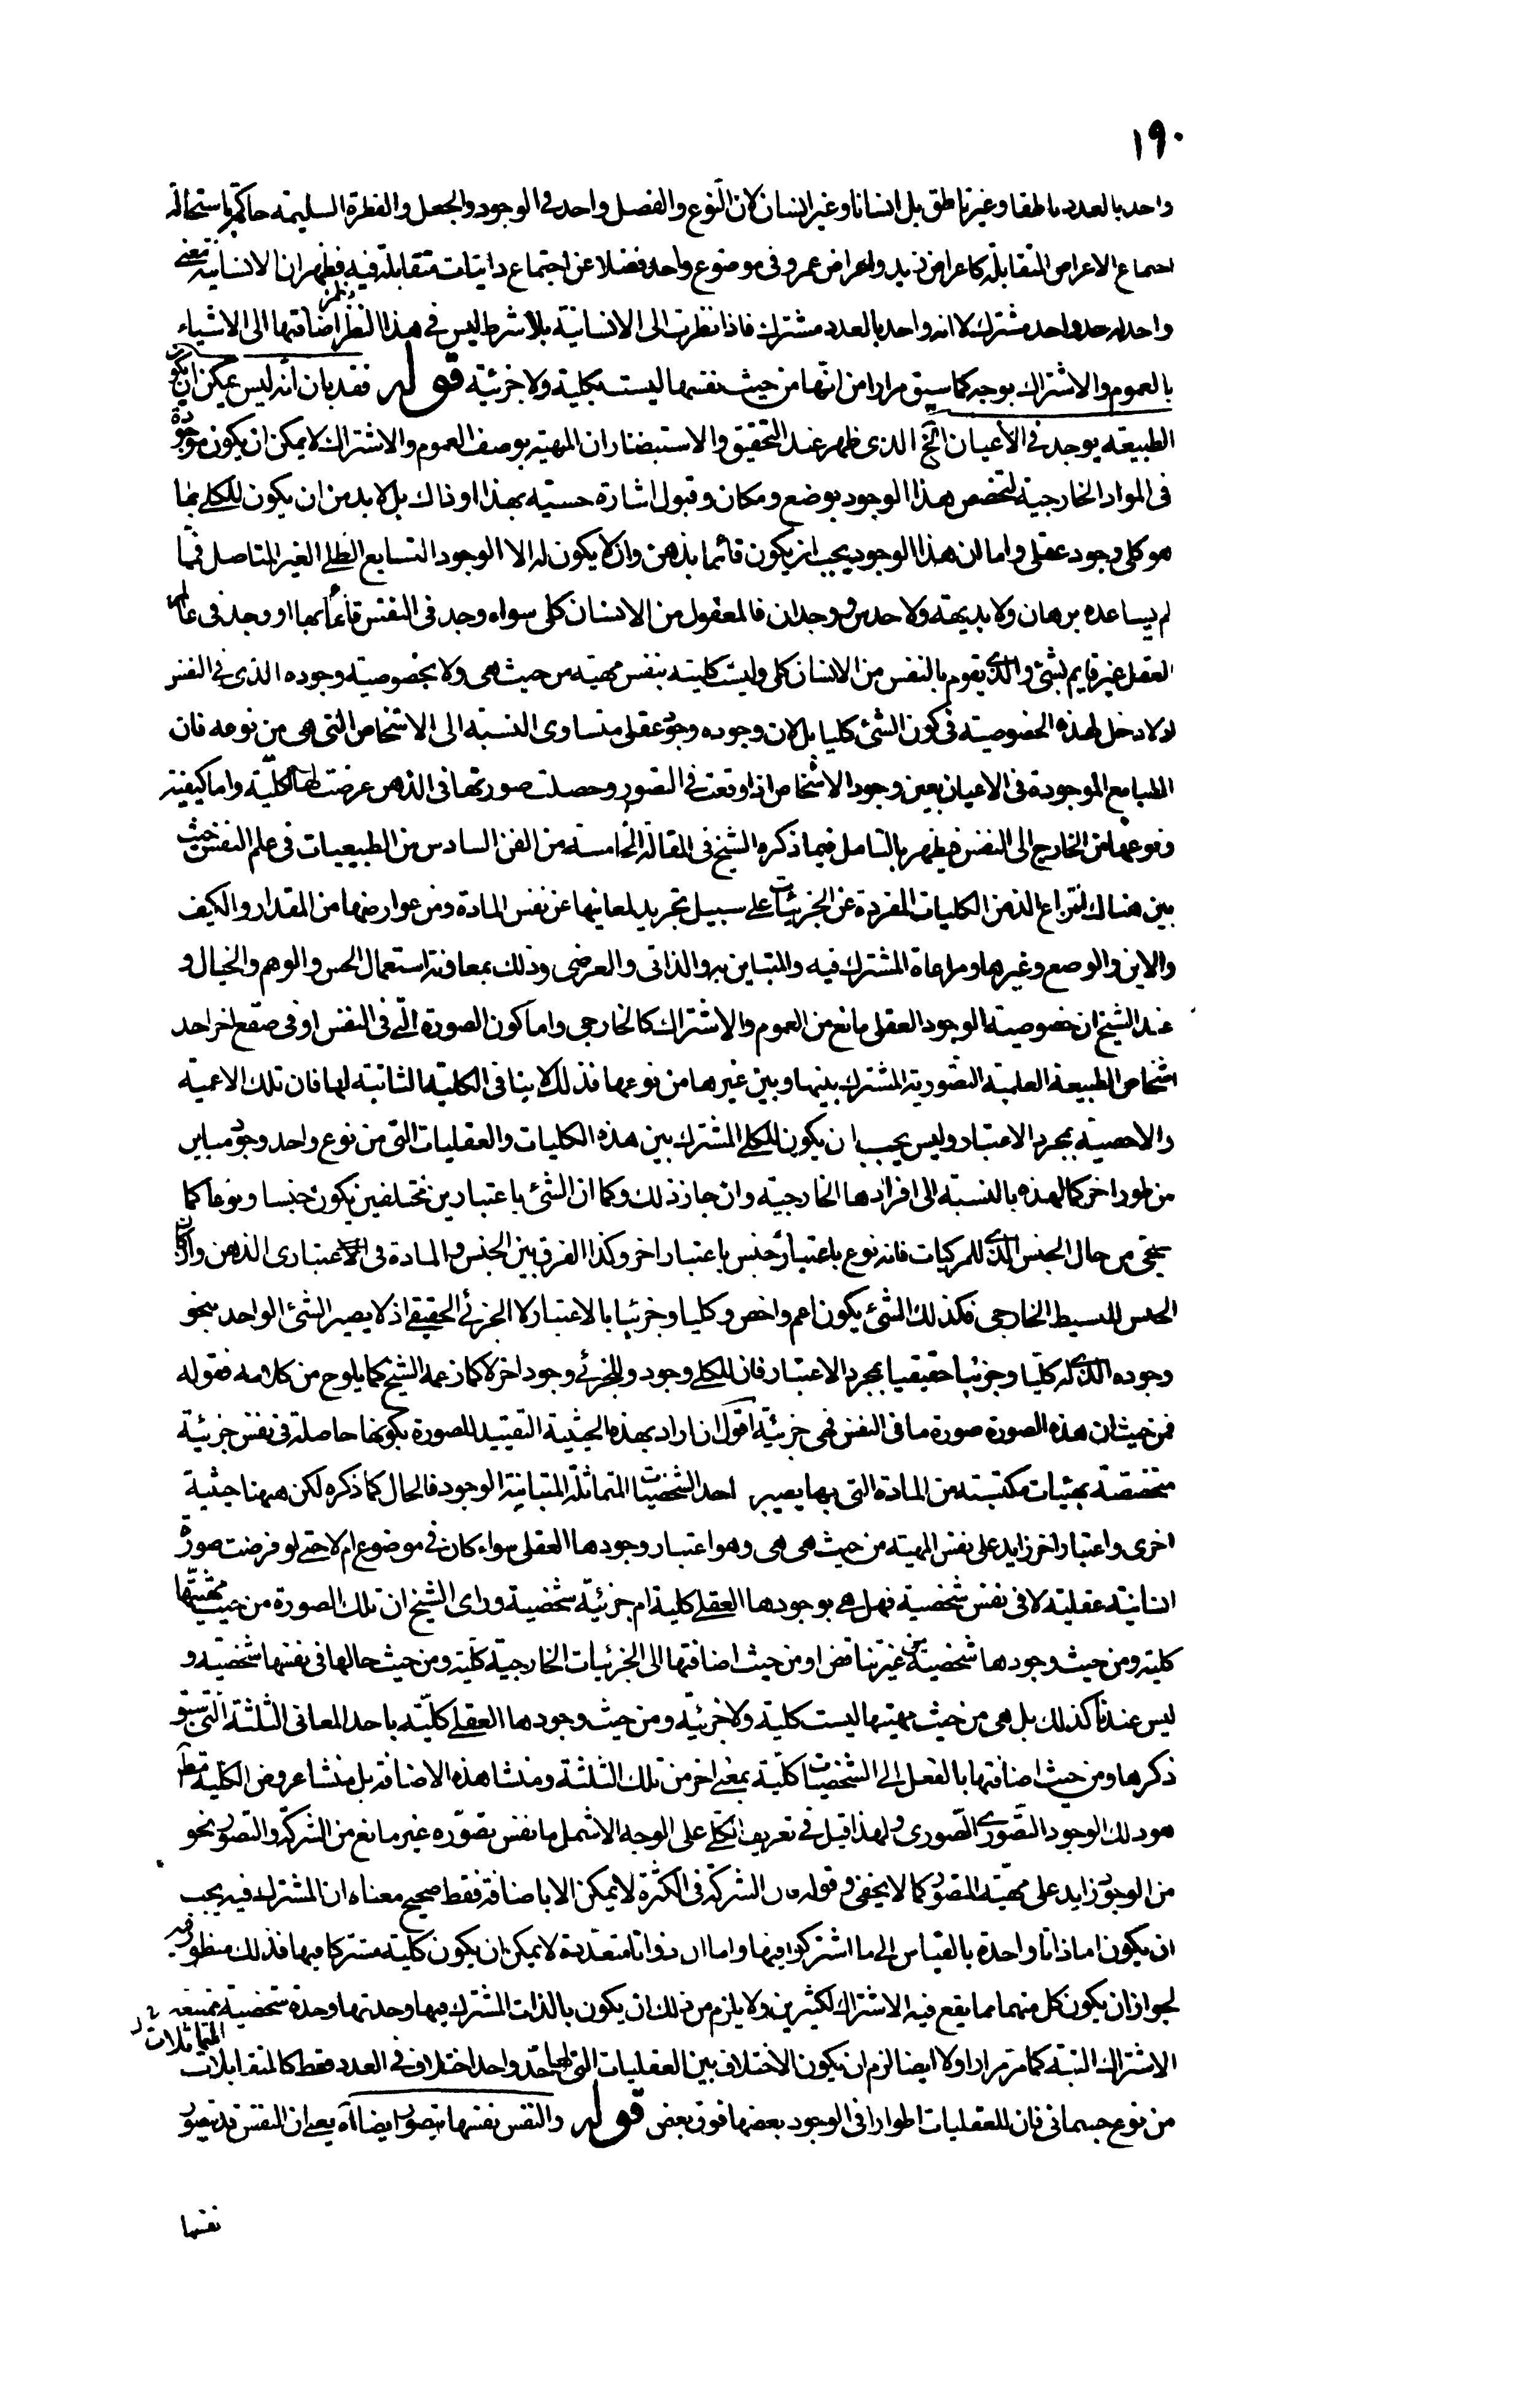 ١٩٠
واحد بالعدد ناطقا وغير ناطق بل انسانا وغير انسان لان النوع والفصل واحد في الوجود والجعل والفطرة السليمة حاكمة باستحالة
اجتماع الاعراض المتقابلة كاعراض زيد واعراض عمرو في موضوع واحد فضلا عن اجتماع ذاتيات متقابلة فيه فظهر ان الانسانية معنى
واحد له حد واحد مشترك لا انه واحد بالعدد مشترك فاذا نظرت الى الانسانية بلا شرط ليس في هذا النظر اضافتها الى الاشياء
بالعموم والاشتراك بوجه كما سبق مرارا من انها من حيث نفسها ليست بكلية ولا جزئية قوله فقد بان انه ليس يمكن ان يكون
الطبيعة يوجد في الاعيان الخ الذي ظهر عند التحقيق والاستبضار ان المهية بوصف العموم والاشتراك لا يمكن ان يكون موجودة
في المواد الخارجية لتخصص هذا الوجود بوضع ومكان وقبول اشارة حسية بهذا او ذاك بل لا بد من ان يكون للكلي بما
هو كلي وجود عقلي واما ان هذا الوجود يجب ان يكون قائما بذهن وان لا يكون له الا الوجود التابع الظلي الغير المتاصل فمما
لم يساعده برهان ولا بديهة ولا حدس ووجدان فالمعقول من الانسان كلي سواء وجد في النفس قائما بها او وجد في عالم
العقل غير قايم بشئ والذي يقوم بالنفس من الانسان كلي وليست كليته بنفس مهيته من حيث هي ولا بخصوصية وجوده الذي في النفس
اذ لا دخل لهذه الخصوصية في كون الشئ كليا بل لان وجوده وجود عقلي متساوي النسبة الى الاشخاص التي هي من نوعه فان
الطبايع الموجودة في الاعيان بعين وجود الاشخاص اذا وقعت في التصور وحصلت صورتها في الذهن عرضت لها الكلية واما كيفية
وقوعها من الخارج الى النفس فيظهر بالتامل فيما ذكره الشيخ في المقالة الخامسة من الفن السادس من الطبيعيات في علم النفس حيث
بين هناك انتزاع الذهن الكليات المفردة عن الجزئيات على سبيل تجريد لمعانيها عن نفس المادة ومن عوارضها من المقدار والكيف
والاين والوضع وغيرها ومراعاة المشترك فيه والمتباين به والذاتي والعرضي وذلك بمعاونة استعمال الحس والوهم والخيال و
عند الشيخ ان خصوصية الوجود العقلي مانع من العموم والاشتراك كالخارجي واما كون الصورة التي في النفس او في صقع اخر احد
اشخاص الطبيعة العلمية التصورية المشترك بينها وبين غيرها من نوعها فذلك لا ينافي الكلية الثابتة لها فان تلك الاعمية
والاخصية بمجرد الاعتبار وليس يجب ان يكون للكلي المشترك بين هذه الكليات والعقليات التي من نوع واحد وجود مباين
من طور اخر كما لهذه بالنسبة الى افرادها الخارجية وان جاز ذلك وكما ان الشئ باعتبارين مختلفين يكون جنسا ونوعا كما
سيجئ من حال الجنس الذي للمركبات فانه نوع باعتبار جنس باعتبار اخر وكذا الفرق بين الجنس والمادة في الاعتباري الذهن وان كان
الجنس للبسيط الخارجي فكذلك الشئ يكون اعم واخص وكليا وجزئيا بالاعتبار لا الجزئي الحقيقي اذ لا يصير الشئ الواحد بنحو
وجوده الذي له كليا وجزئيا حقيقيا بمجرد الاعتبار فان للكلي وجود وللجزئي وجود اخر لا كما زعمه الشيخ كما يلوح من كلامه فقوله
فمن حيث ان هذه الصورة صورة ما في النفس فهي جزئية اقول ان اراد بهذه الحيثية التقييد للصورة بكونها حاصلة في نفس جزئية
متخصصة بهيئات مكتسبة من المادة التي بها يصير احد الشخصيات المتماثلة المتباينة الوجود فالحال كما ذكره لكن ههنا حيثية
اخرى واعتبار اخر زايد على نفس المهية من حيث هي هي وهو اعتبار وجودها العقلي سواء كان في موضوع ام لا حتى لو فرضت صورة
انسانية عقلية لا في نفس شخصية فهل هي بوجودها العقلي كلية ام جزئية شخصية وراى الشيخ ان تلك الصورة من حيث مهيتها
كلية ومن حيث وجودها شخصية من غير تناقض او من حيث اضافتها الى الجزئيات الخارجية كلية ومن حيث حالها في نفسها شخصية و
ليس عندنا كذلك بل هي من حيث مهيتها ليست كلية ولا جزئية ومن حيث وجودها العقلي كلية باحد المعاني الثلثة التي سبق
ذكرها ومن حيث اضافتها بالفعل الى الشخصيات كلية بمعنى اخر من تلك الثلثة ومنشا هذه الاضافة بل منشا عروض الكلية مطلقا
هو ذلك الوجود التصوري الصوري ولهذا قيل في تعريف الكلي على الوجه الاشمل ما نفس تصوره غير مانع من الشركة والتصور نحو
من الوجود زايد على مهية المتصور كما لا يخفى وقوله فان الشركة في الكثرة لا يمكن الا باضافة فقط صحيح معناه ان المشترك فيه يجب
ان يكون اما ذاتا واحدة بالقياس الى ما اشتركوا فيها واما ان ذواتا متعددة لا يمكن ان يكون كلية مشتركا فيها فذلك منظور فيه
لجواز ان يكون كل منهما مما يقع فيه الاشتراك لكثيرين ولا يلزم من ذلك ان يكون بالذات المشترك فيها وحدتها وحدة شخصية تمتنعه
الاشتراك البتة كما مر مرارا ولا ايضا لزم ان يكون الاختلاف بين العقليات التي لها حد واحد اختلاف في العدد فقط كالمتقابلات المتماثلات
من نوع جسماني فان للعقليات اطوارا في الوجود بعضها فوق بعض قوله والنفس نفسها يتصور ايضا اه يعنى ان النفس قد يتصور
نفسها